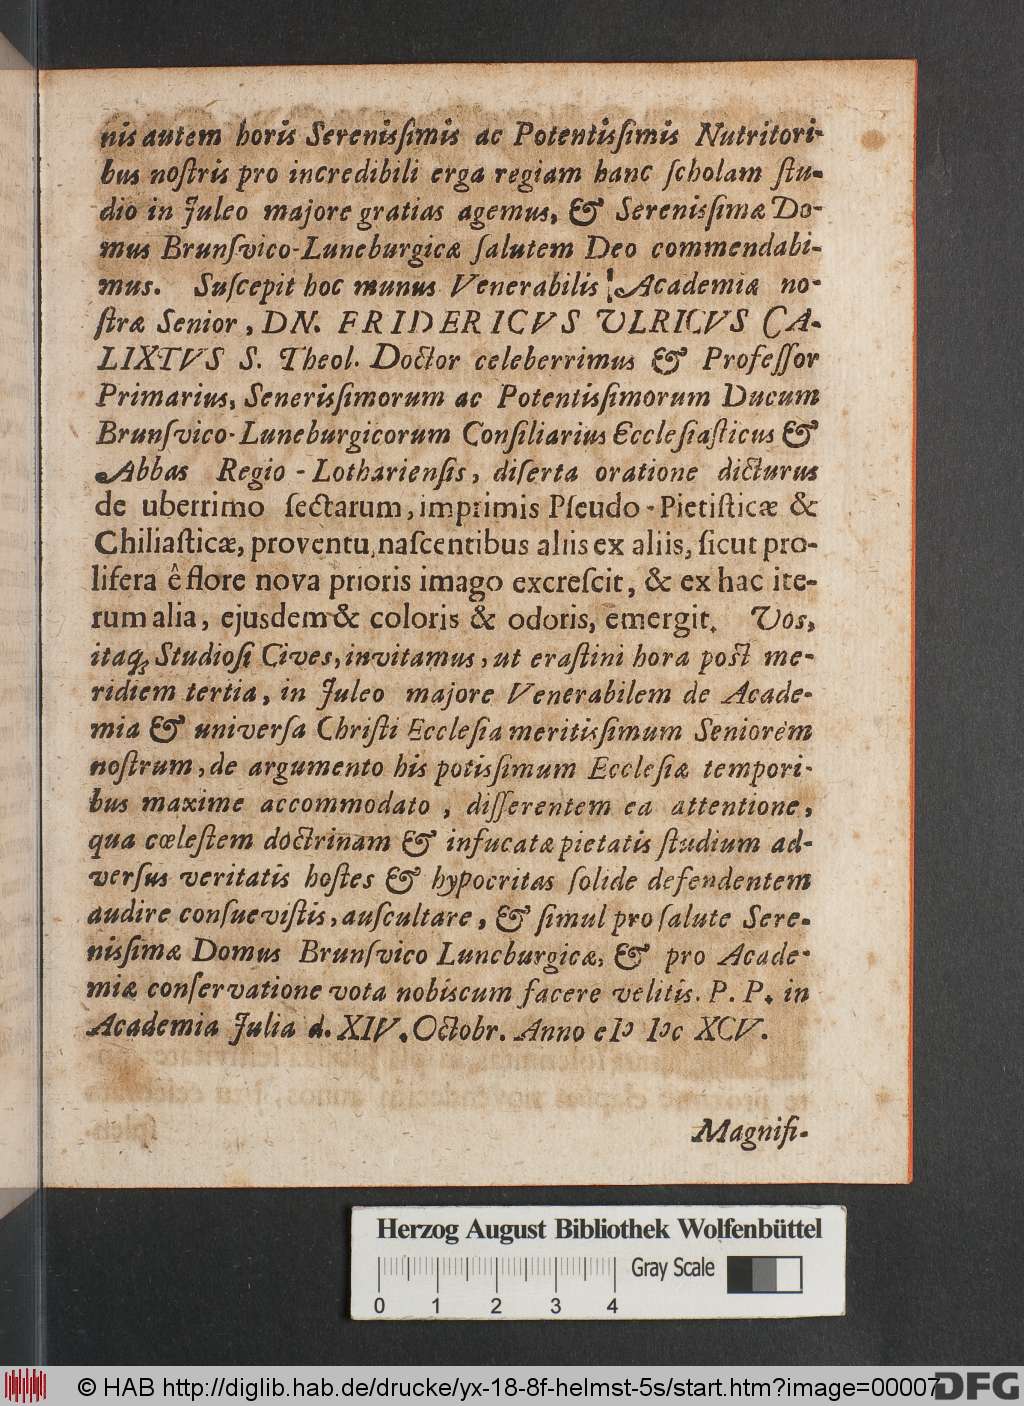 nis autem horis Serenissimis ac Potentissimis Nutritori-
bus noſtris pro incredibili erga regiam hanc ſcholam ſtu-
dio in Juleo majore gratias agemus, & Serenisſimæ Do-
mus Brunſvico-Luneburgicæ ſalutem Deo commendabi-
mus. Suſcepit hoc munus Venerabilis Academiæ no-
ſtræ Senior, DN. FRIDERICVS VLRICVS CA-
LIXTVS S. Theol. Doctor celeberrimus & Profeſſor
Primarius, Senerisſimorum ac Potentisſimorum Ducum
Brunſvico-Luneburgicorum Conſiliarius Eccleſiaſticus &
Abbas Regio-Lotharienſis, diſerta oratione dicturus
de uberrimo ſectarum, imprimis Pſeudo-Pietiſticæ &
Chiliaſticæ, proventu, naſcentibus aliis ex aliis, ſicut pro-
lifera ê flore nova prioris imago excreſcit, & ex hac ite-
rum alia, ejusdem & coloris & odoris, emergit. Vos,
itaq; Studioſi Cives, invitamus, ut eraſtini hora poſt me-
ridiem tertia, in Juleo majore Venerabilem de Acade-
mia & univerſa Chriſti Eccleſia meritisſimum Seniorem
noſtrum, de argumento his potisſimum Eccleſiæ tempori-
bus maxime accommodato, diſſerentem ea attentione,
qua cœleſtem doctrinam & infucatæ pietatis ſtudium ad-
verſus veritatis hoſtes & hypocritas ſolide defendentem
audire conſueviſtis, auſcultare, & ſimul pro ſalute Sere-
nisſimæ Domus Brunſvico Luneburgicæ, & pro Acade-
miæ conſervatione vota nobiscum facere velitis. P. P. in
Academia Julia d. XIV. Octobr. Anno cIↄ Iↄc XCV.
Magnifi-
Herzog August Bibliothek Wolfenbüttel
Gray Scale
0 1 2 3 4
© HAB http://diglib.hab.de/drucke/yx-18-8f-helmst-5s/start.htm?image=00007
DFG